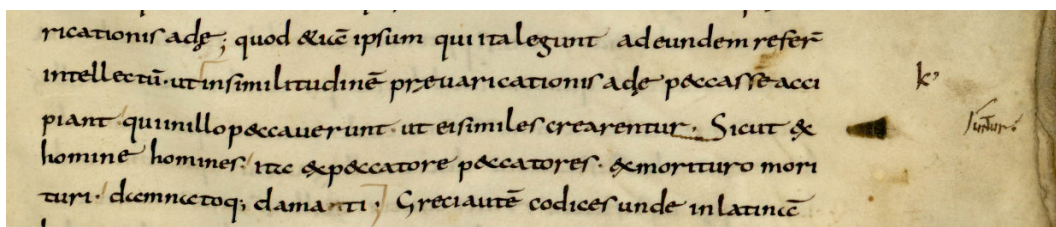 ricationis adę; quod &iā ipsum qui ita legunt ad eundem referт̄
intellectū· ut in similitudinē pręuaricationis adę p&casse acci
piant qui in illo p&cauerunt· ut ei similes crearentur. Sicut & k'
homine homines· ita & p&catore p&catores· & morituro mori
turi· damnatoq; damanti· Greci autē codices unde in latinā